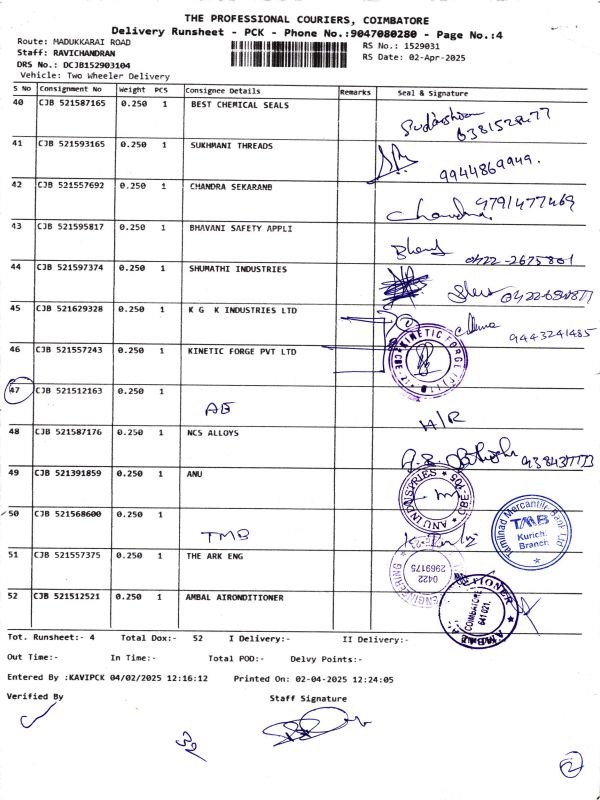 THE PROFESSIONAL COURIERS, COIMBATORE
Delivery Runsheet - PCK - Phone No.:9047080280 - Page No.:4
Route: MADUKKARAI ROAD
RS No.: 1529031
Staff: RAVICHANDRAN
RS Date: 02-Apr-2025
DRS No.: DCJB152903104
Vehicle: Two Wheeler Delivery
S No Consignment No Weight PCS Consignee Details Remarks Seal & Signature
40 CJB 521587165 0.250 1 BEST CHEMICAL SEALS
41 CJB 521593165 0.250 1 SUKHMANI THREADS
9944869949.
42 CJB 521557692 0.250 1 CHANDRA SEKARANB
9791477469
43 CJB 521595817 0.250 1 BHAVANI SAFETY APPLI
0422-2675801
44 CJB 521597374 0.250 1 SHUMATHI INDUSTRIES
45 CJB 521629328 0.250 1 K G K INDUSTRIES LTD
9443241485
46 CJB 521557243 0.250 1 KINETIC FORGE PVT LTD
KINETIC FORGE
47 CJB 521512163 0.250 1
AE
H/R
48 CJB 521587176 0.250 1 NCS ALLOYS
49 CJB 521391859 0.250 1 ANU
ANU INDUSTRIES
50 CJB 521568600 0.250 1
TMB
Tamilnad Mercantile Bank Ltd
TMB
Kurichi
Branch
51 CJB 521557375 0.250 1 THE ARK ENG
0422
2969175
ENGINEERING
52 CJB 521512521 0.250 1 AMBAL AIRONDITIONER
COIMBATORE
641 021.
Tot. Runsheet:- 4 Total Dox:- 52 I Delivery:- II Delivery:-
Out Time:- In Time:- Total POD:- Delvy Points:-
Entered By :KAVIPCK 04/02/2025 12:16:12 Printed On: 02-04-2025 12:24:05
Verified By Staff Signature
2